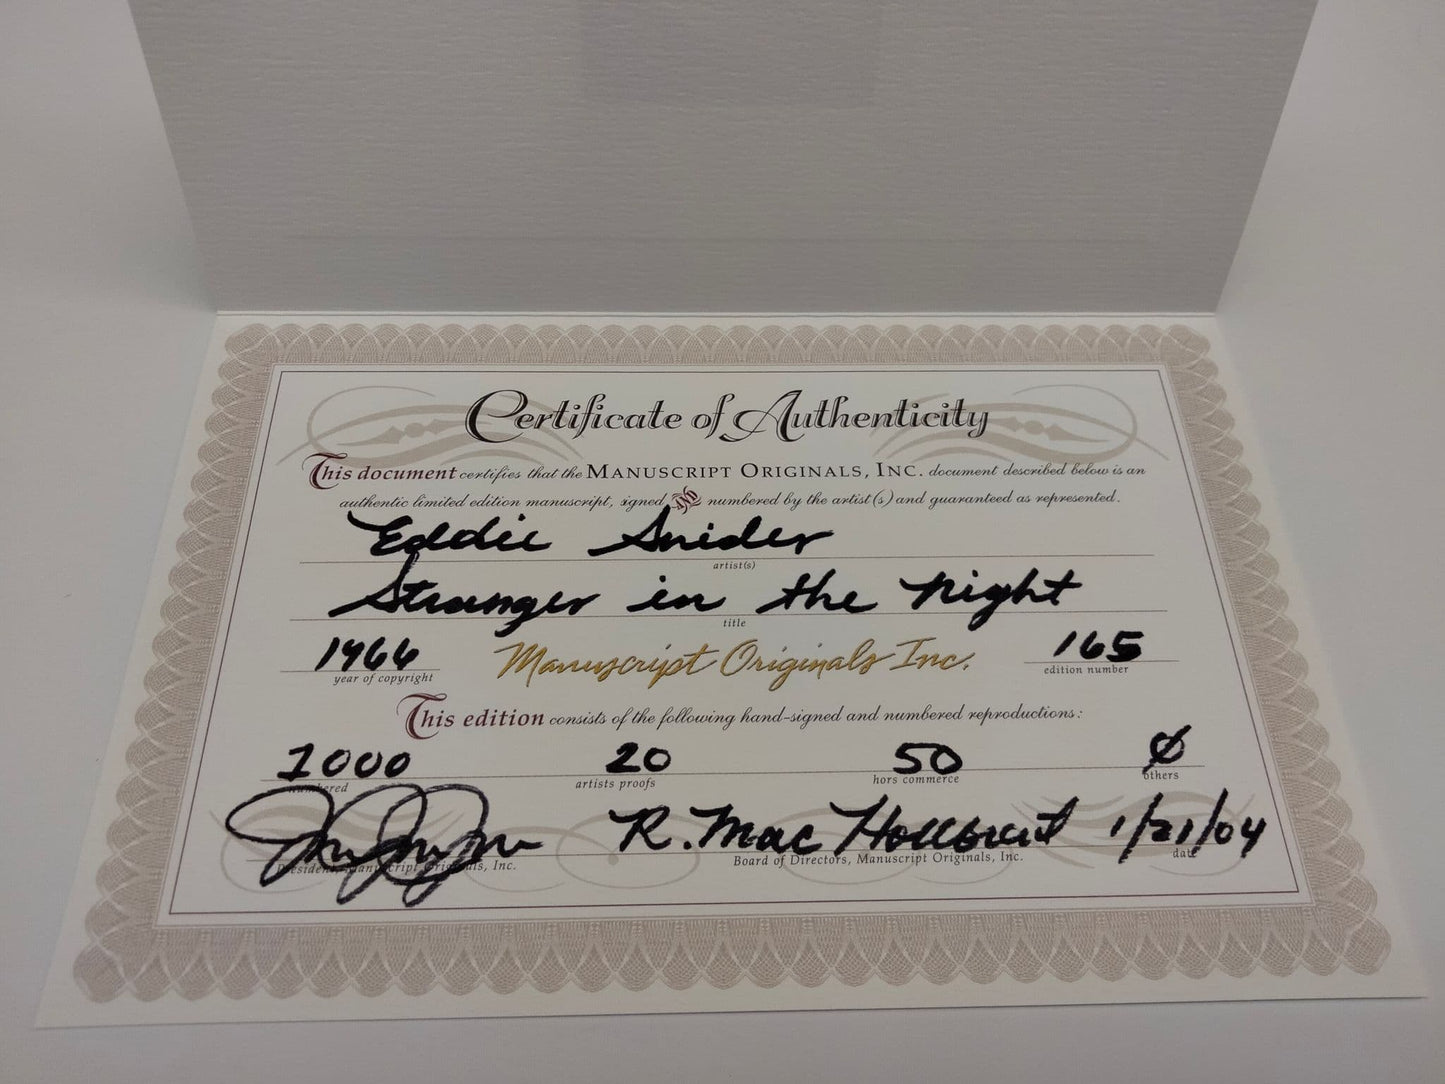 Certificate of Authenticity
This document certifies that the MANUSCRIPT ORIGINALS, INC. document described below is an
authentic limited edition manuscript, signed AND numbered by the artist(s) and guaranteed as represented.
Eddie Snider
artist(s)
Stranger in the Night
title
1966 Manuscript Originals Inc. 165
year of copyright edition number
This edition consists of the following hand-signed and numbered reproductions:
1000 20 50 0
numbered artists proofs hors commerce others
R. Mac Holbert 1/21/04
President, Manuscript Originals, Inc. Board of Directors, Manuscript Originals, Inc. date